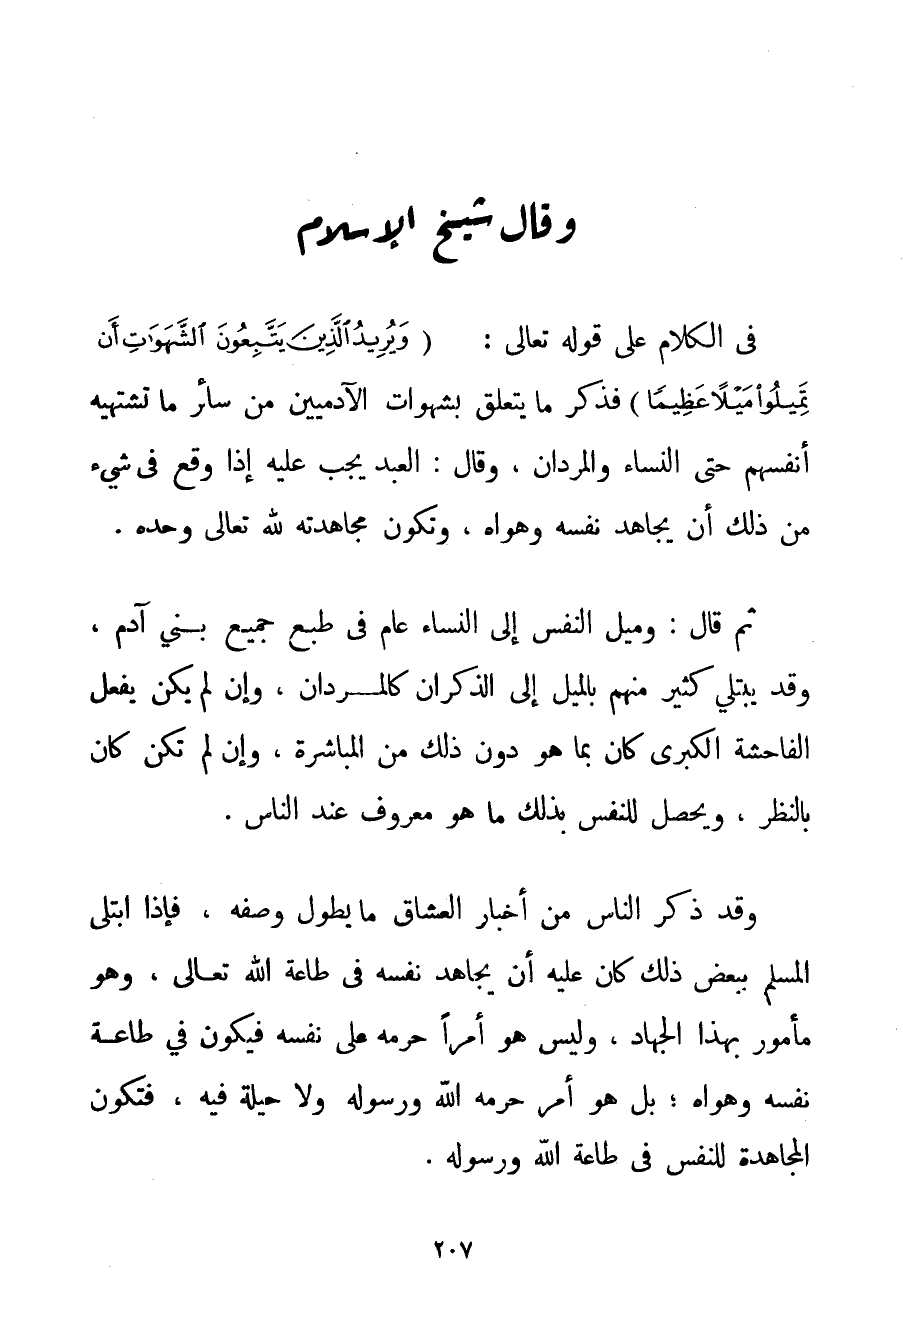 وقال شيخ الإسلام
فى الكلام على قوله تعالى : ( وَيُرِيدُ ٱلَّذِينَ يَتَّبِعُونَ ٱلشَّهَوَٰتِ أَن
تَمِيلُوا۟ مَيْلًا عَظِيمًا ) فذكر ما يتعلق بشهوات الآدميين من سائر ما تشتهيه
أنفسهم حتى النساء والمردان ، وقال : العبد يجب عليه إذا وقع فى شيء
من ذلك أن يجاهد نفسه وهواه ، وتكون مجاهدته لله تعالى وحده .
ثم قال : وميل النفس إلى النساء عام فى طبع جميع بني آدم ،
وقد يبتلي كثير منهم بالميل إلى الذكران كالمردان ، وإن لم يكن يفعل
الفاحشة الكبرى كان بما هو دون ذلك من المباشرة ، وإن لم تكن كان
بالنظر ، ويحصل للنفس بذلك ما هو معروف عند الناس .
وقد ذكر الناس من أخبار العشاق ما يطول وصفه ، فإذا ابتلى
المسلم ببعض ذلك كان عليه أن يجاهد نفسه فى طاعة الله تعالى ، وهو
مأمور بهذا الجهاد ، وليس هو أمراً حرمه على نفسه فيكون في طاعة
نفسه وهواه ؛ بل هو أمر حرمه الله ورسوله ولا حيلة فيه ، فتكون
المجاهدة للنفس فى طاعة الله ورسوله .
٢٠٧